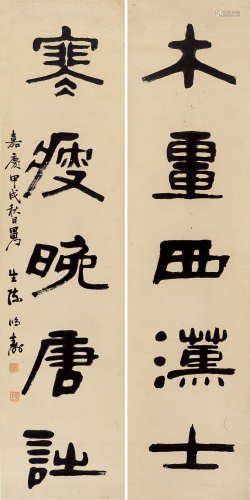 木重西漢士
寒瘦晚唐詩
嘉慶甲戌秋日曼生陳鴻壽